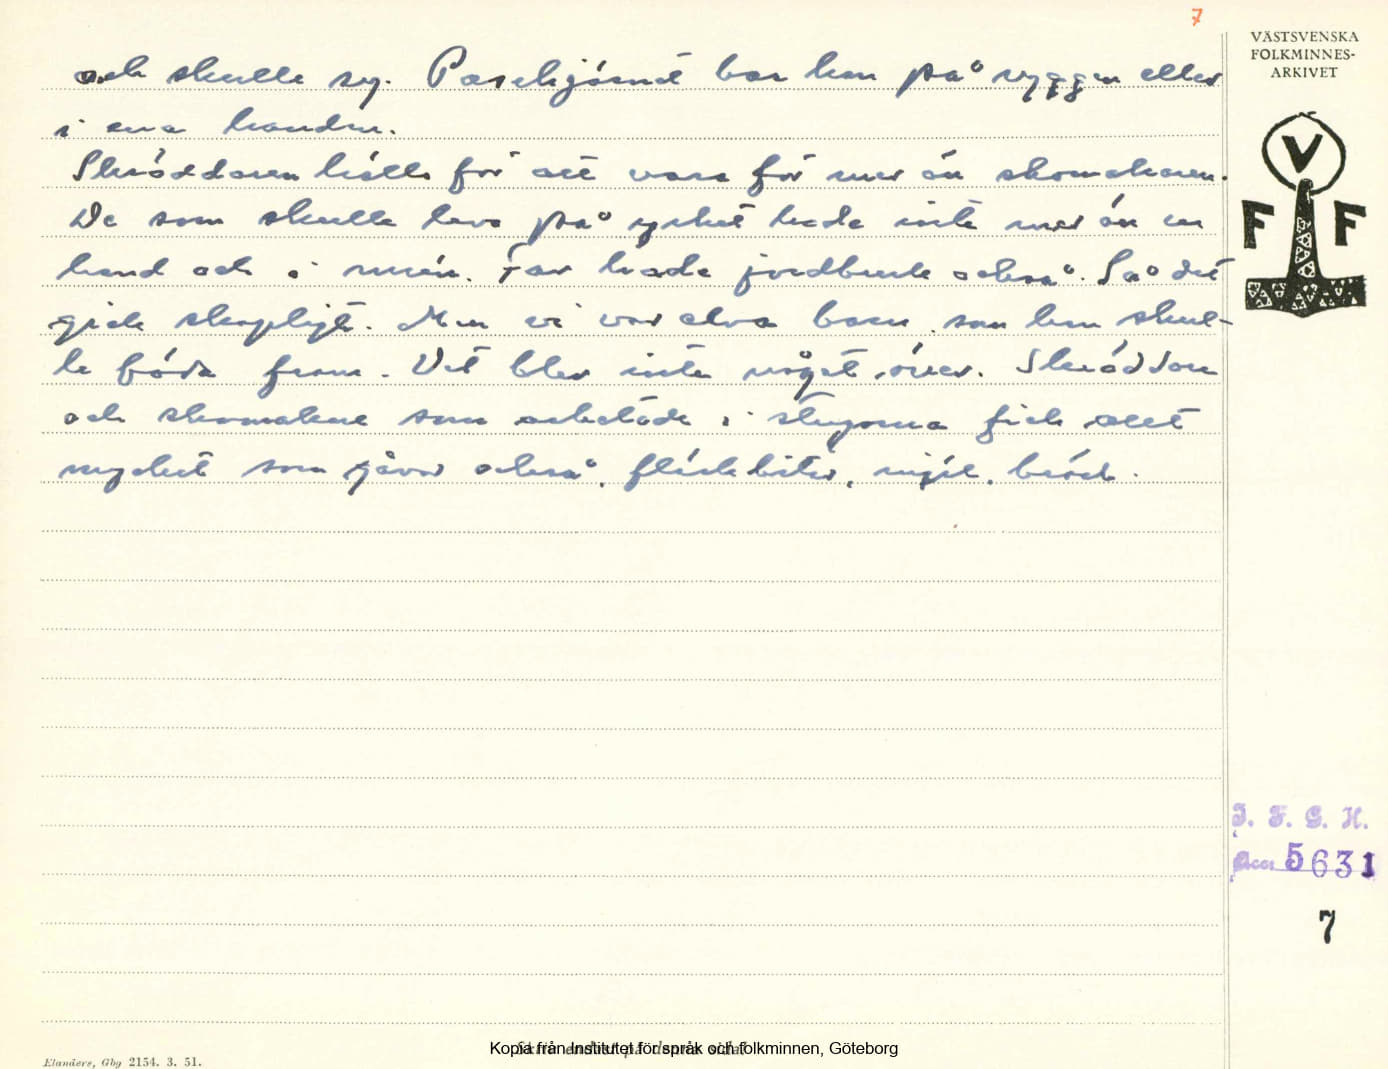 7
VÄSTSVENSKA
FOLKMINNES-
ARKIVET
V
F F
och skulle sy. Pressjärnet bar han på ryggen eller
i ena handen.
Skräddaren hölls för att vara för mer än skomakaren.
De som skulle leva på yrket hade inte mer än en
hand och i mun. Far hade jordbruk också. Så det
gick skapligt. Men vi var elva barn som han skul-
le föda fram. Det blev inte något över. Skräddare
och skomakare som arbetade i stugorna fick allt
mycket som gåvor också, fläskbitar, mjöl, bröd.
I. F. G. H.
Acc. 5631
7
Elanders, Gbg 2154. 3. 51.
Kopia från Institutet för språk och folkminnen, Göteborg